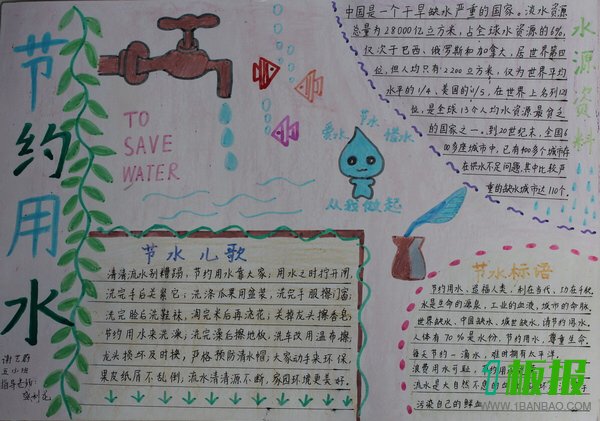 节约用水
谢艺蔚
五小班
指导老师:
TO
SAVE
WATER
爱水 节水 惜水
从我做起
水源资料
中国是一个干旱缺水严重的国家。淡水资源
总量为28000亿立方米,占全球水资源的6%,
仅次于巴西、俄罗斯和加拿大,居世界第四
位,但人均只有2200立方米,仅为世界平均
水平的1/4、美国的1/5,在世界上名列121
位,是全球13个人均水资源最贫乏
的国家之一。到20世纪末,全国6
00多座城市中,已有400多个城市存
在供水不足问题,其中比较严
重的缺水城市达110个。
节水儿歌
清清流水别糟蹋,节约用水靠大家,用水之时拧开闸,
洗完手后关紧它;洗涤瓜果用盆装,洗完手服擦门窗;
洗完脸后洗鞋袜,淘完米后再浇花;关掉龙头擦香皂,
节约用水来洗澡;洗完澡后擦地板,洗车改用湿布擦,
龙头损坏及时换,严格预防滴水帽;大家动手来环保,
果皮纸屑不乱倒,流水清清源不断,家园环境更美好。
节水标语
节约用水,造福人类,利在当代,功在千秋
水是生命的源泉、工业的血液、城市的命脉
世界缺水、中国缺水、城世缺水、请节约用水。
人体有70%是水份,节约用水,尊重生命。
每天节约一滴水,难时拥有太平洋。
浪费用水可耻,节约用水
流水是大自然不息的
污染自己的鲜血
1板报
WWW.1BANBAO.COM